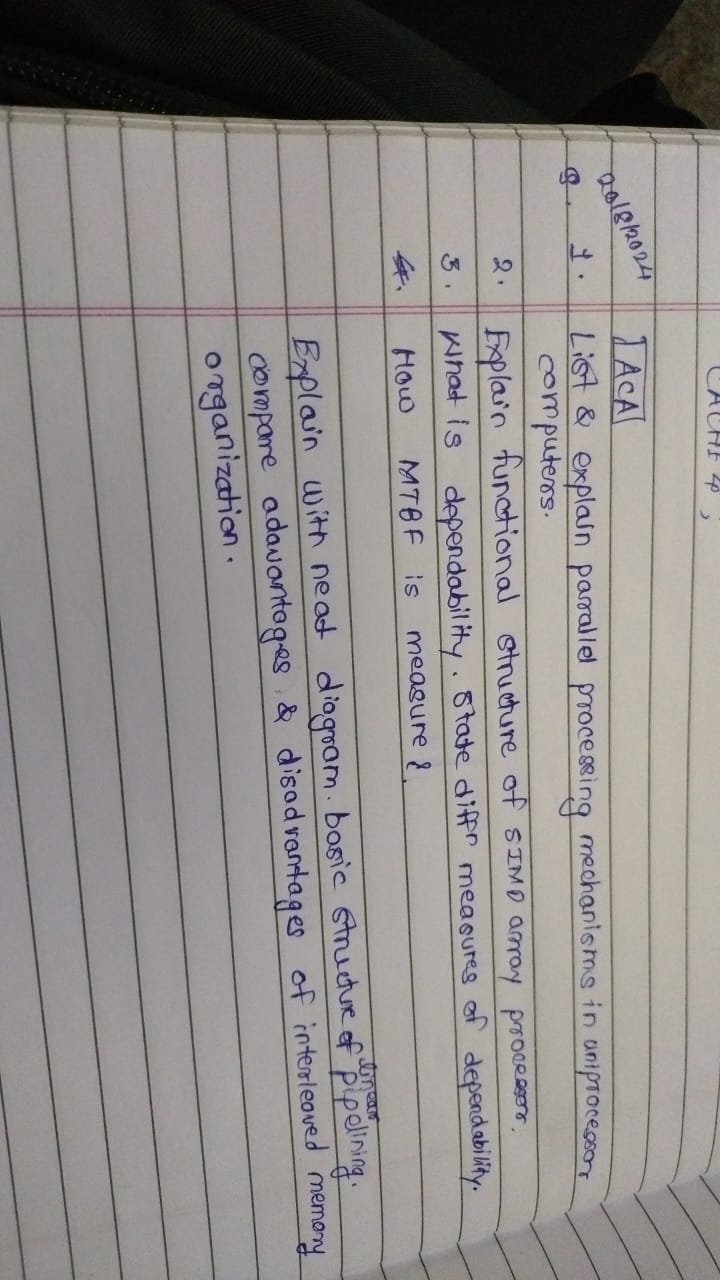 20/8/2024
ACA
Q. 1. List & explain parallel processing mechanisms in uniprocessor
computers.
2. Explain functional structure of SIMD array processor.
3. What is dependability. State diffn measures of dependability.
4. How MTBF is measure?
Explain with neat diagram. basic structure of linear pipelining.
compare adavantages & disadvantages of interleaved memory
organization.